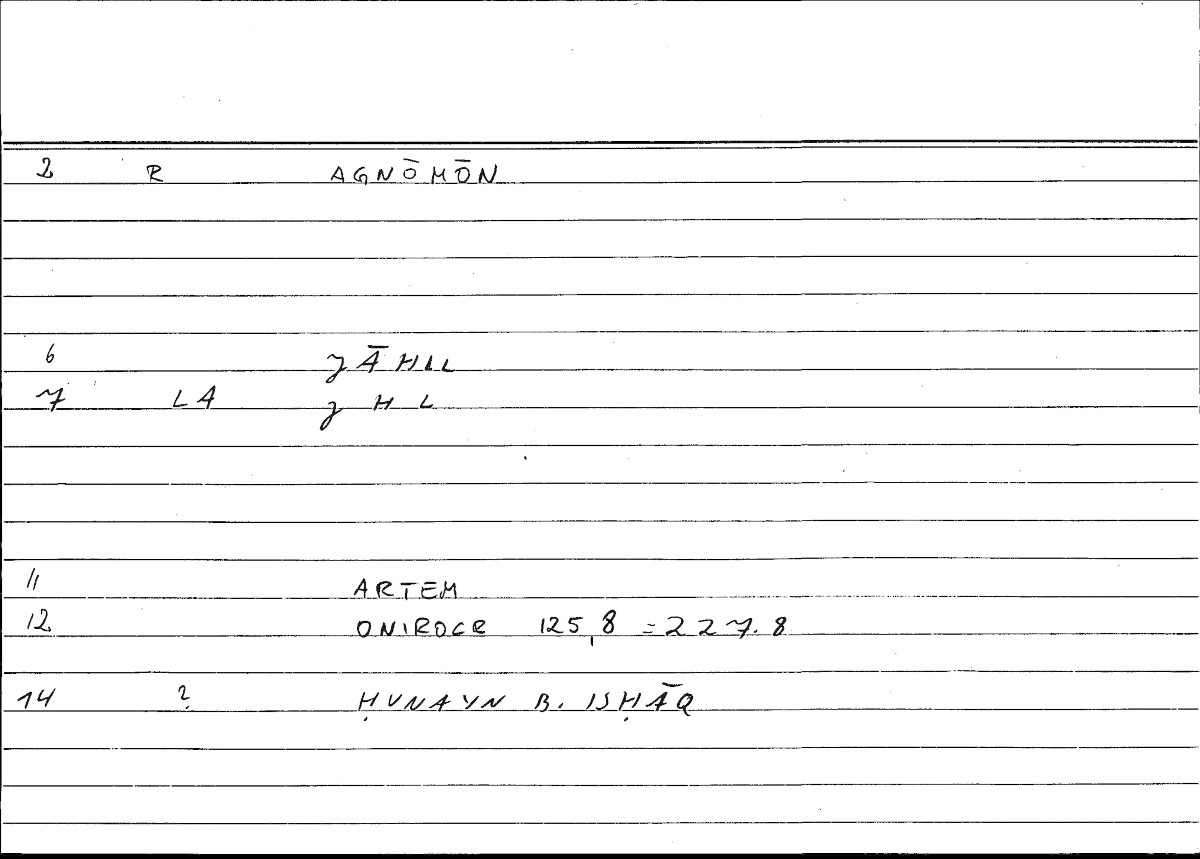 2 R AGNŌMŌN
6 ǧĀHIL
7 LA ǧ H L
11 ARTEM
12 ONIROCR 125,8 = 227.8
14 ? ḤUNAYN B. ISḤĀQ